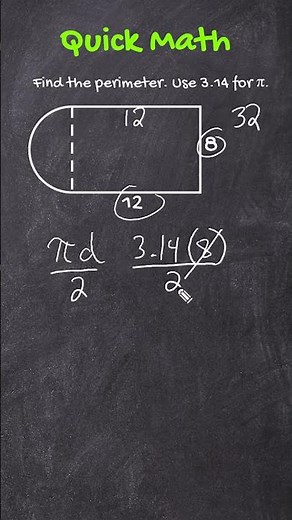 Quick Math
Find the perimeter. Use 3.14 for π.
12 32
8
12
πd/2 3.14(8)/2